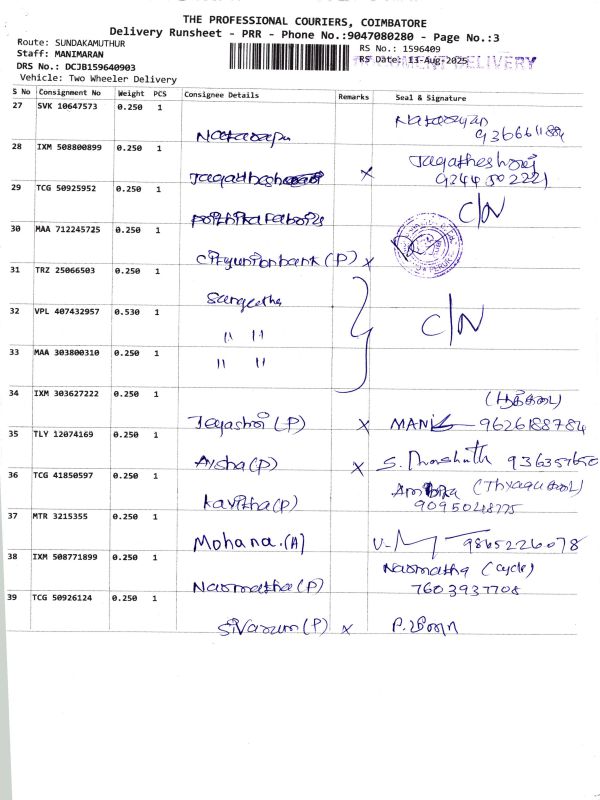 THE PROFESSIONAL COURIERS, COIMBATORE
Delivery Runsheet - PRR - Phone No.:9047080280 - Page No.:3
Route: SUNDAKAMUTHUR
RS No.: 1596409
Staff: MANIMARAN
RS Date: 13-Aug-2025
DELIVERY
DRS No.: DCJB159640903
Vehicle: Two Wheeler Delivery
S No Consignment No Weight PCS Consignee Details Remarks Seal & Signature
27 SVK 10647573 0.250 1
Natarayan
28 IXM 508800899 0.250 1
x
29 TCG 50925952 0.250 1
C/N
30 MAA 712245725 0.250 1
Cityunionbank (P) x
31 TRZ 25066503 0.250 1
Sangeetha
32 VPL 407432957 0.530 1
" "
C/N
33 MAA 303800310 0.250 1
" "
34 IXM 303627222 0.250 1
Jeyashri (P) x MANI 9626188784
35 TLY 12074169 0.250 1
Aisha (P) x S.
36 TCG 41850597 0.250 1
Kavitha (P)
37 MTR 3215355 0.250 1
Mohana. (A) 9865226078
38 IXM 508771899 0.250 1
Narmatha (Cycle)
Narmatha (P) 7603937708
39 TCG 50926124 0.250 1
(P) x